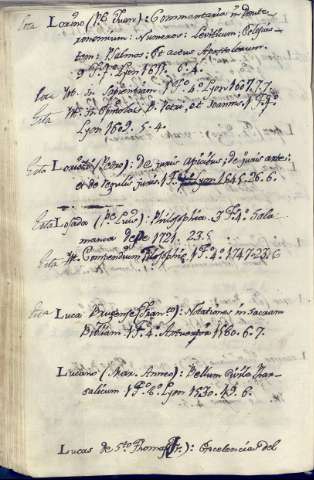 Esta Lorino (Pe Juan): Commentaria in Deute-
ronomium: Numeros: Leviticum: Eclesias-
tem: Psalmos: Et actus Apostolorum.
9 Fs. fo. Lyon 1611. 6. 4.
Esta It. In Sapientiam 1 Fo. 4o Lyon 1607. 7. 7.
Esta It. In Epistolas D. Petri, et Joannis 1 Fo.
Lyon 1609. 5. 4.
Esta (Pedro): de juris Apicibus; de juris arte;
et de regulis juris 1 Fo. Lyon 1545. 26. 6.
Esta Losada (Pe Luis): Philosophia 3 Fs. 4o Sala-
manca desde 1721. 23. 5.
Esta It. Compendium Filosophie 1 Fo. 4o 1747. 23. 6
Esta Luca Brugense (Franco): Notationes in sacram
Bibliam 1 Fo. 4o Antuerpia 1580. 6. 7.
Lucano (Mar. Anneo): Bellum Civile Phar-
salicum 1 Fo. 8o Lyon 1530. 49. 6.
Lucas de Sto Thomas: Excelencias del